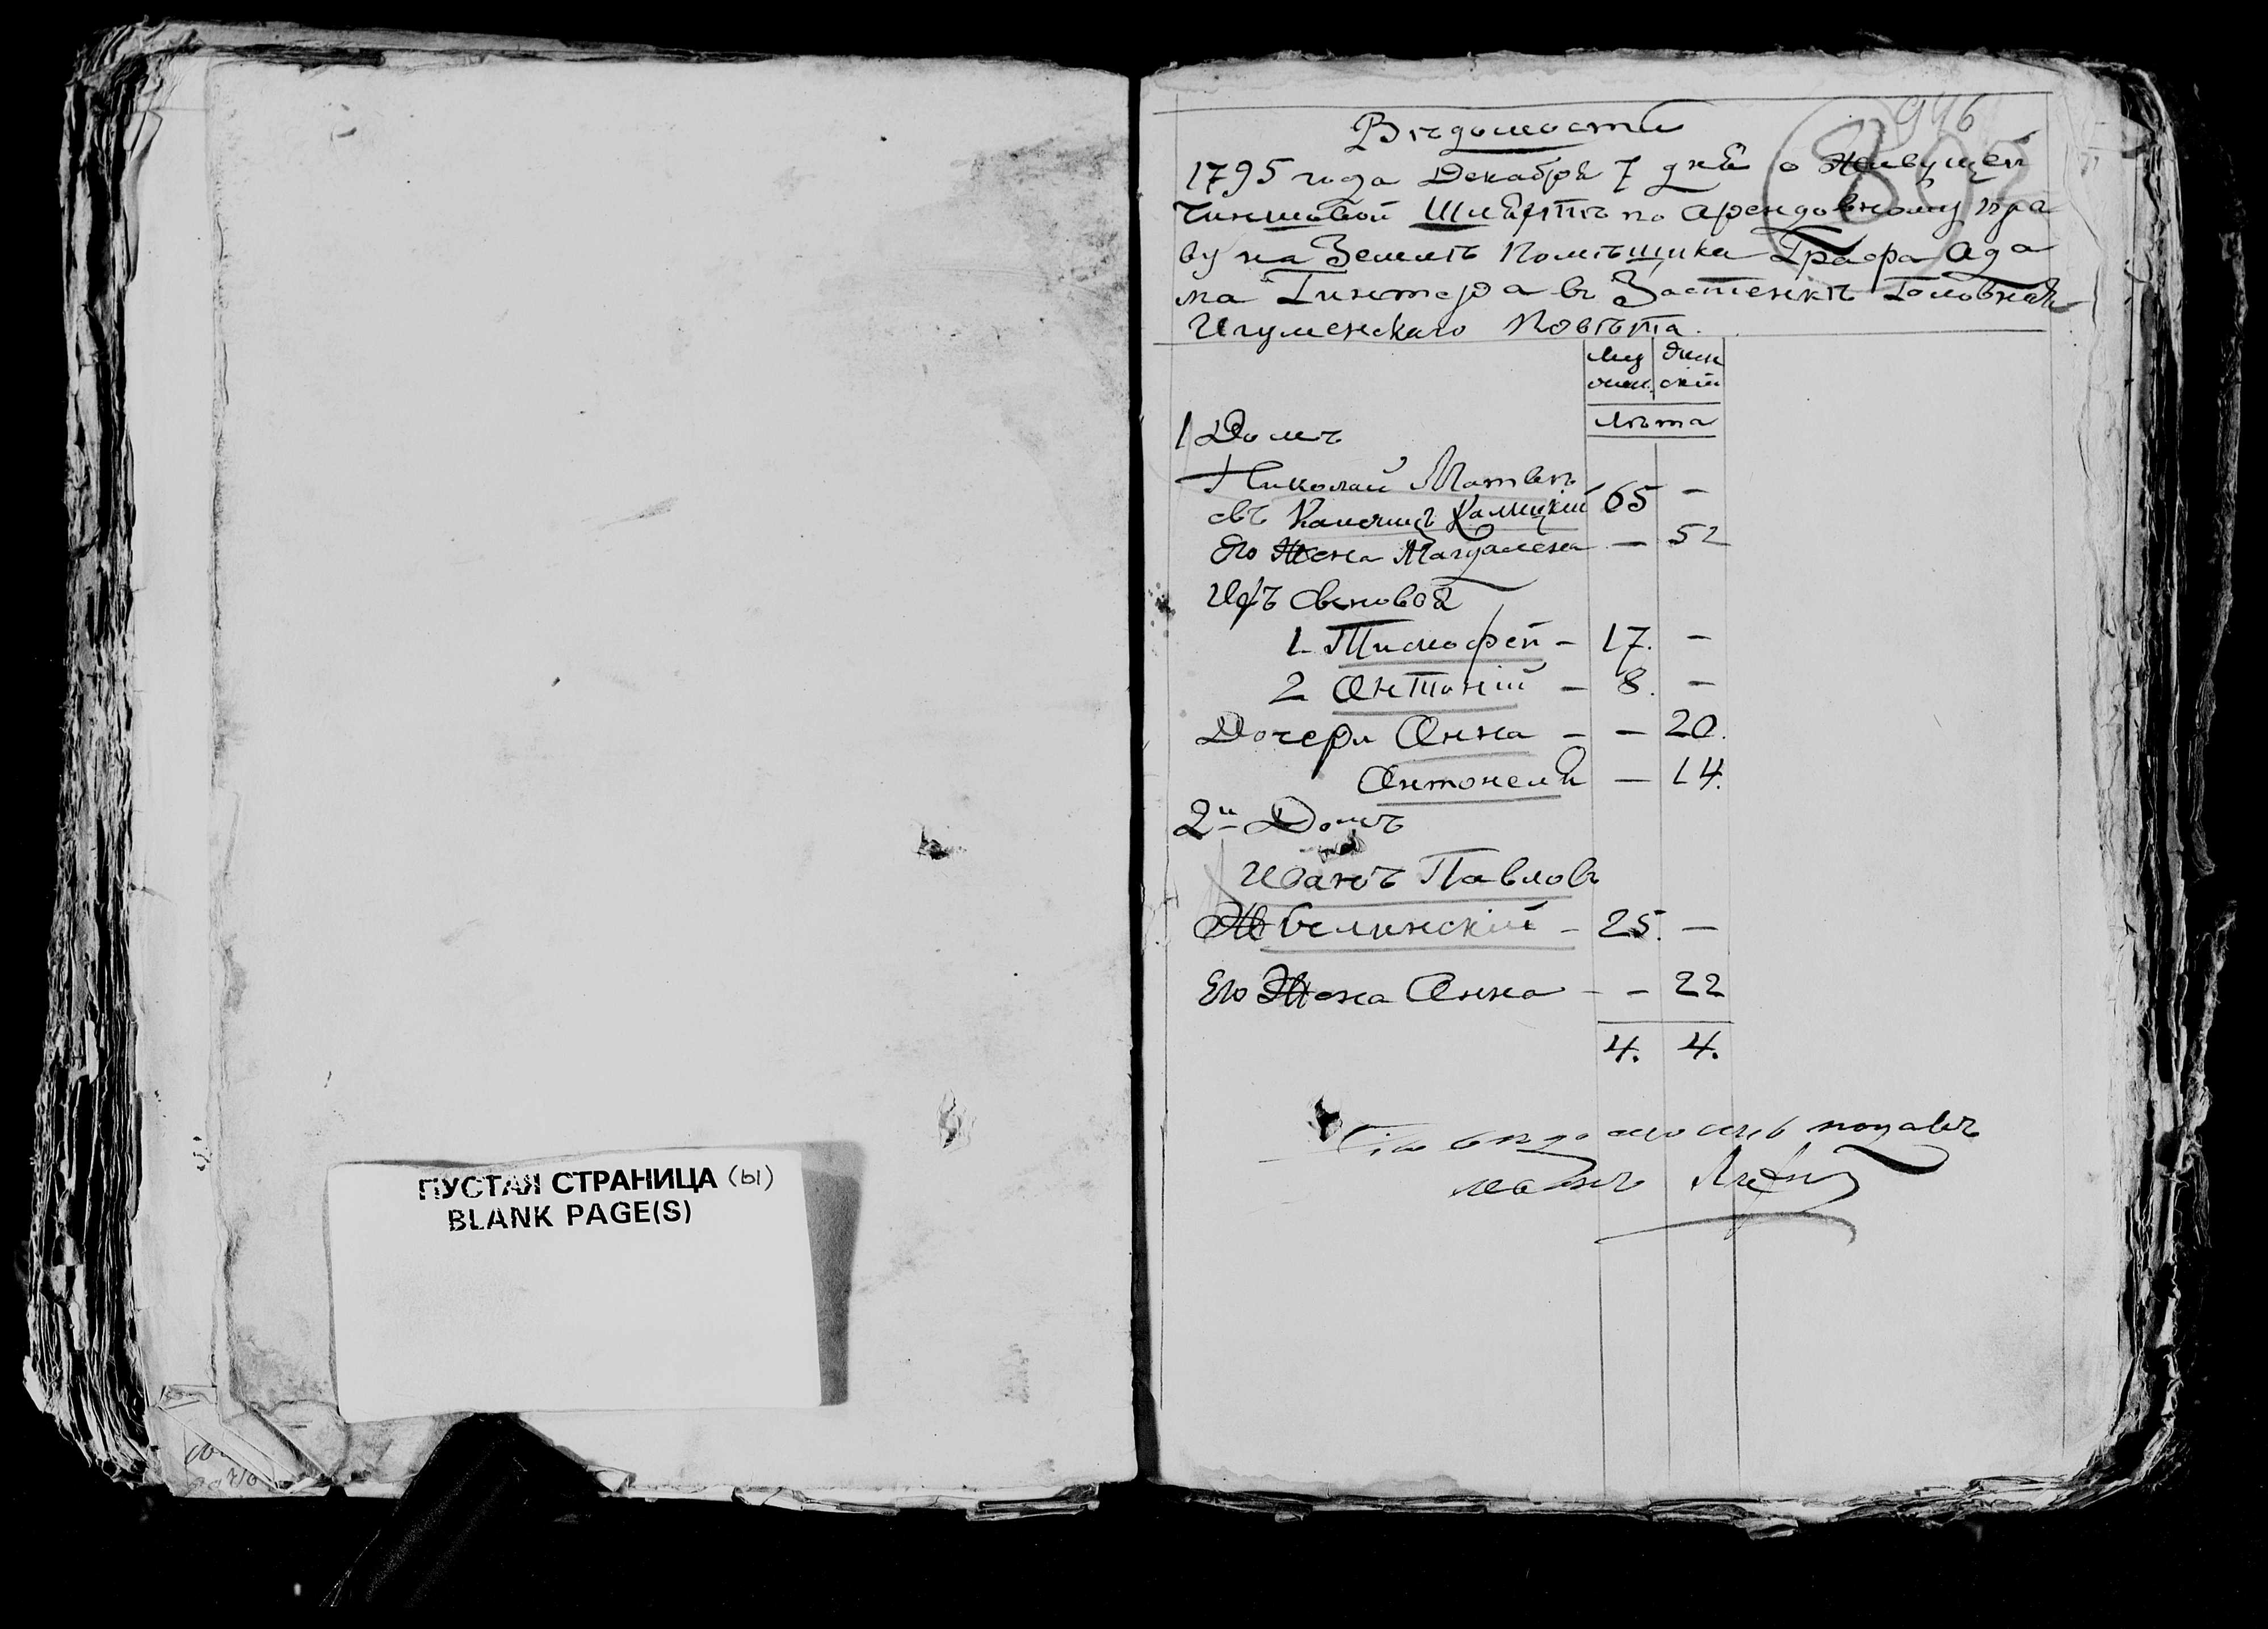 ПУСТАЯ СТРАНИЦА (ы)
BLANK PAGE(S)
946
Вѣдомости
1795 года Декабря 7 дня о Живущей
Чиншовой Шляхтѣ по Арендовному пра
ву на Землѣ Помѣщика Графа Ада
ма Гинтера въ Застенкѣ
Игуменскаго Повѣта.
муж женс
ска
Лѣта
1 Домъ
Николай Матвѣ
евъ 65 —
Его Жена Магдалена — 52
Ихъ сыновья
1 Тимофей — 17. —
2 Антоній — 8. —
Дочери Анна — — 20.
Антонеля — 14.
2й Домъ
Иванъ Павловъ
Жвелинскій — 25. —
Его Жена Анна — — 22
4. 4.
Сію вѣдомость подалъ